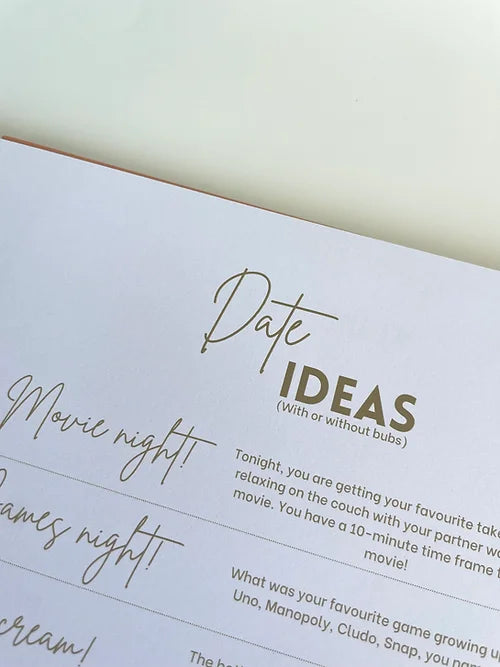 Date
IDEAS
(With or without bubs)
Movie night!
Tonight, you are getting your favourite
relaxing on the couch with your partner
movie. You have a 10-minute time frame
movie!
night!
What was your favourite game growing
Uno, Manopoly, Cludo, Snap, you
cream!
The